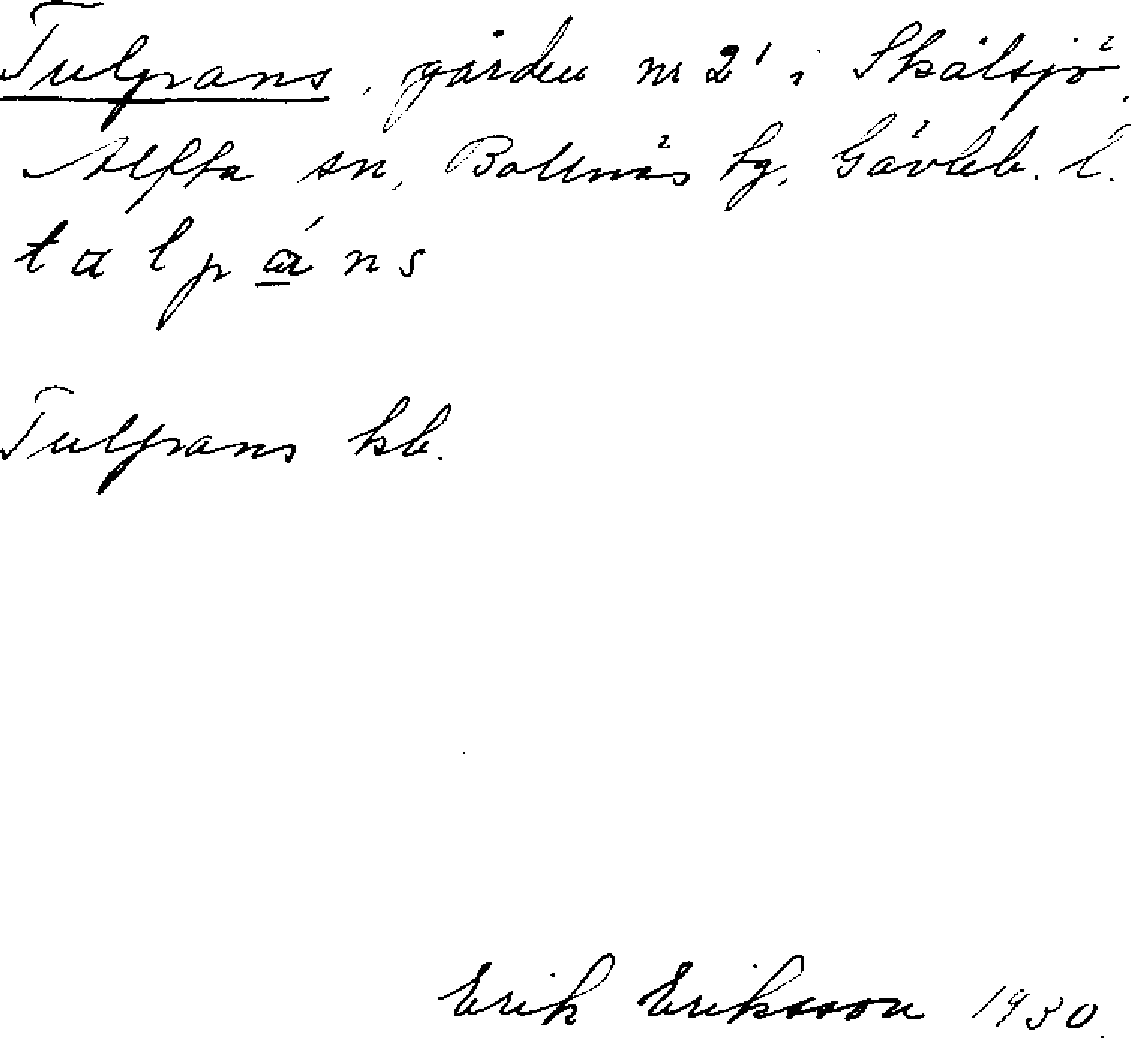 Tulpans, gården nr 2' i Skålsjö,
Alfta sn, Bollnäs tg, Gävleb. l.
talpáns
Tulpans kb.
Erik Eriksson 1930.